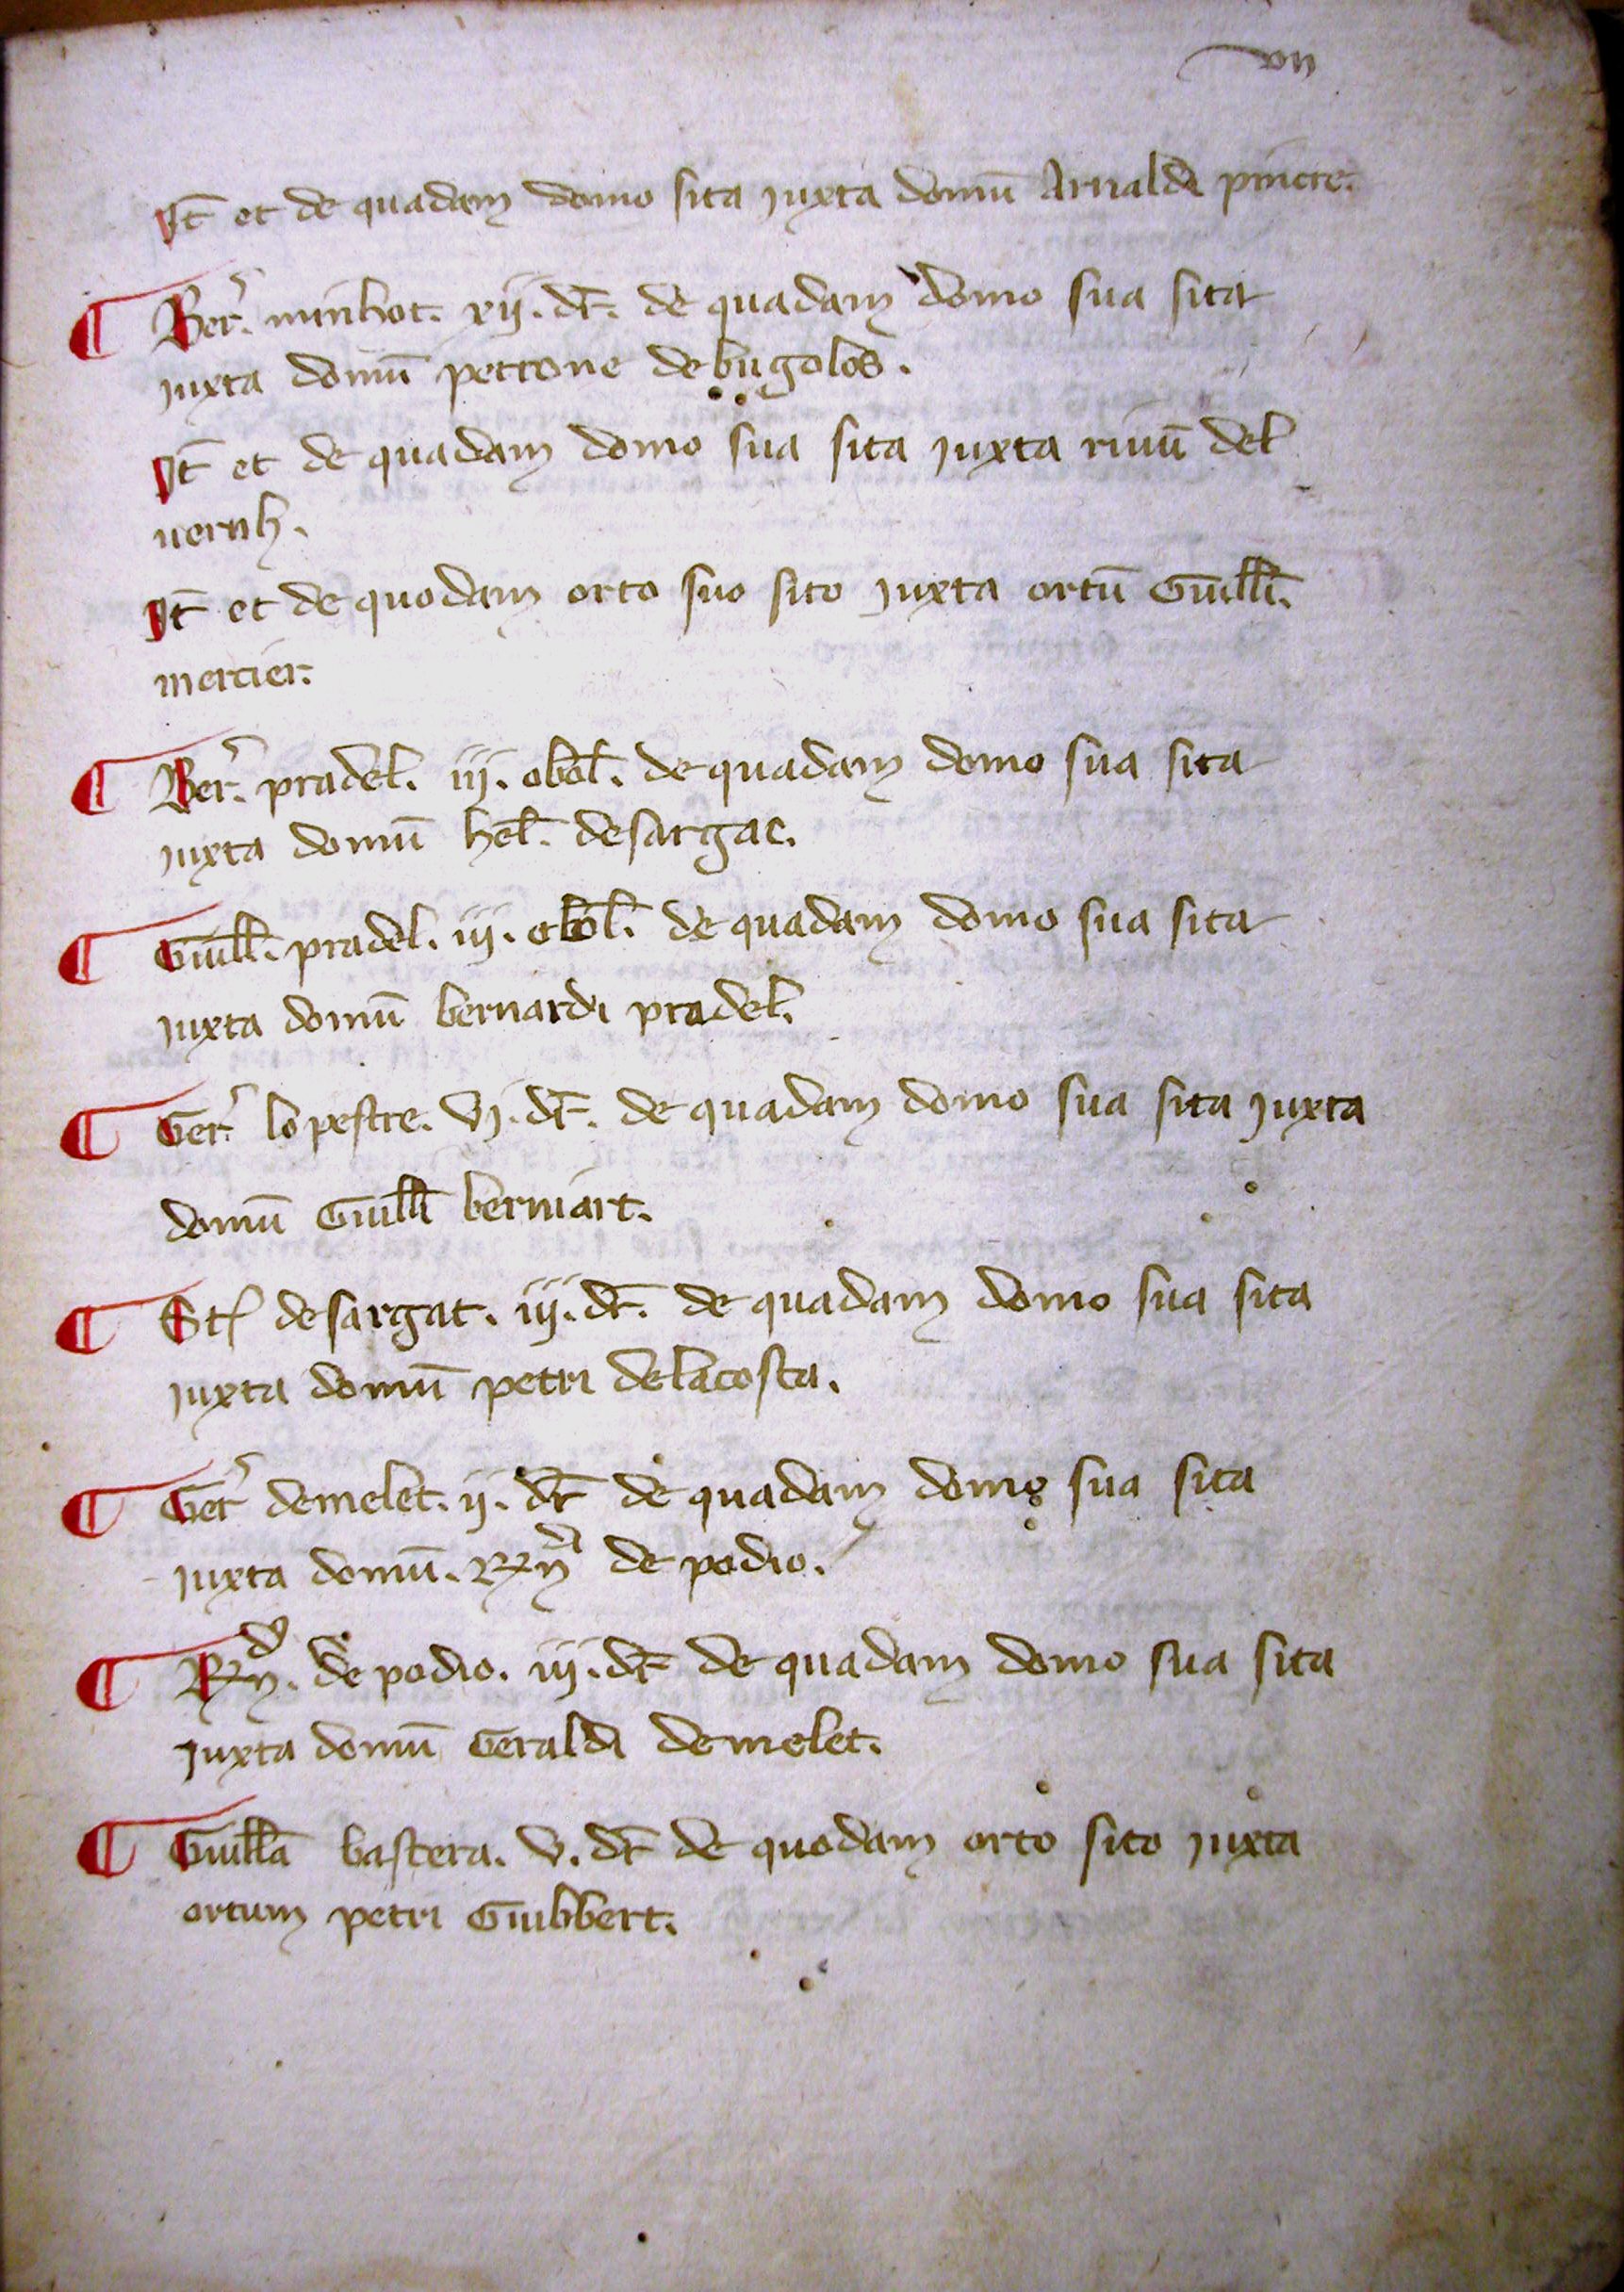 vii
It̄ et de quadam domo sita juxta domū Arnaldi pinctr̄.
¶ Ber̾. minhot. xij. dr̄. de quadam domo sua sita
juxta domū petrone de bugolos.
It̄ et de quadam domo sua sita juxta riuū del
uernh.
It̄ et de quodam orto suo sito juxta ortū Guill̄i.
mercier.
¶ Ber̾. pradel. iij. obol̄. de quadam domo sua sita
juxta domū hel̄. de sargac.
¶ Guill̄. pradel. iij. obol̄. de quadam domo sua sita
juxta domū bernardi pradel.
¶ Ger̾. lo pestre. vj. dr̄. de quadam domo sua sita juxta
domū Guill̄i berniart.
¶ St̄ de sargat. iij. dr̄. de quadam domo sua sita
juxta domū petri de la costa.
¶ Ger̾ de melet. ij. dr̄ de quadam domo sua sita
juxta domū. Ry̅ᵈⁱ de podio.
¶ Ry̅ᵈ. de podio. iij. dr̄ de quadam domo sua sita
juxta domū Geraldi de melet.
¶ Guill̄a bastera. v. dr̄ de quodam orto sito juxta
ortum petri Guibbert.